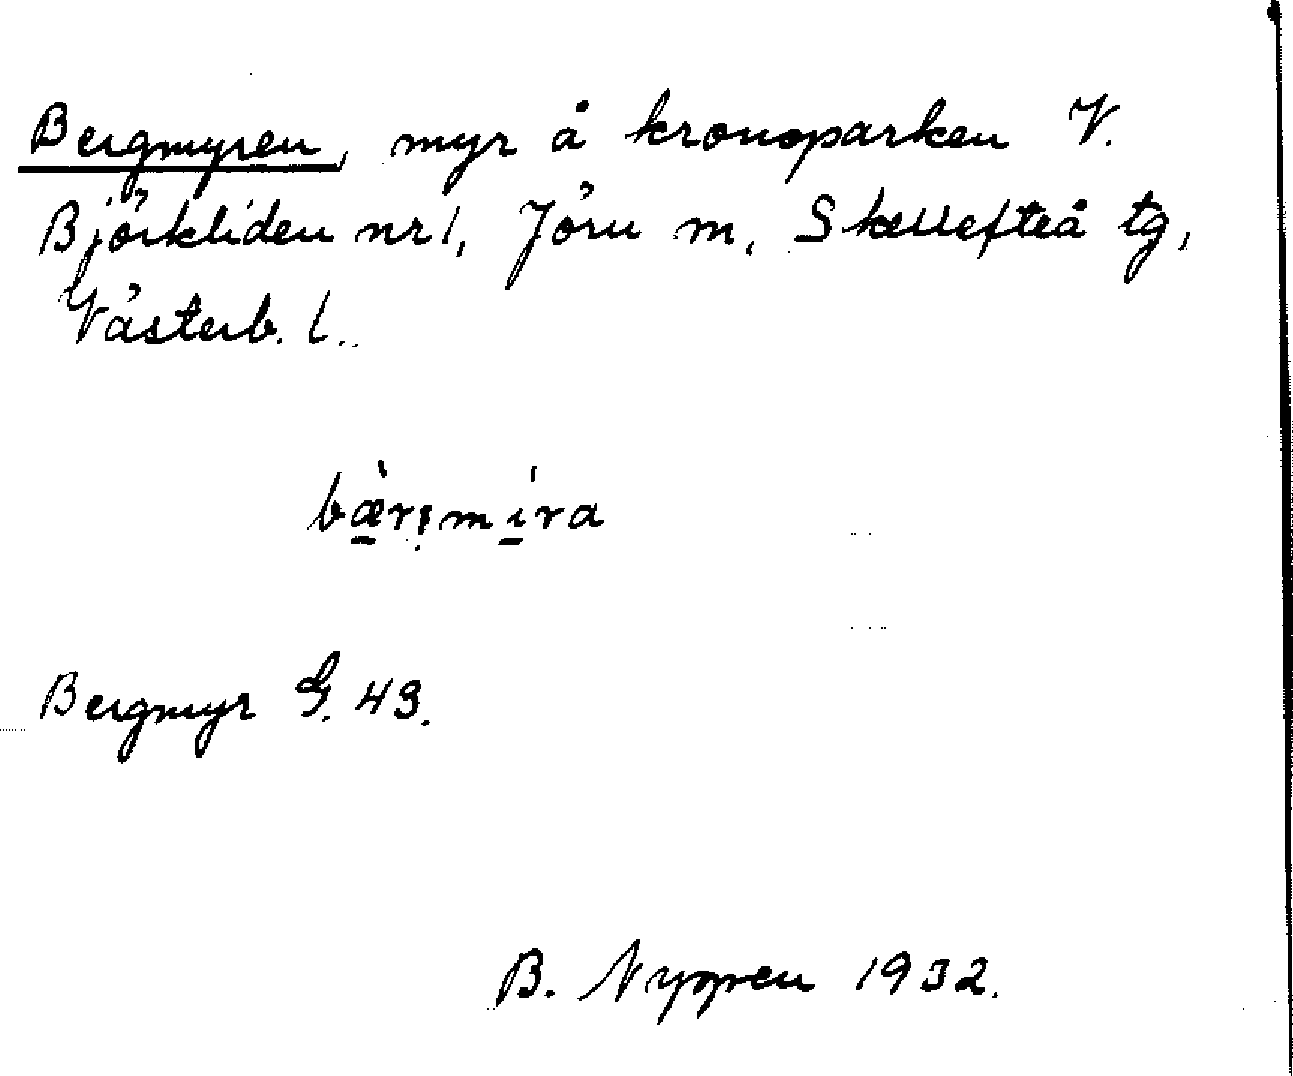 Bergmyren, myr å kronoparken V.
Björkliden nr 1, Jörn m, Skellefteå tg,
Västerb. l.
Bergmyr G. 43.
B. Nygren 1932.